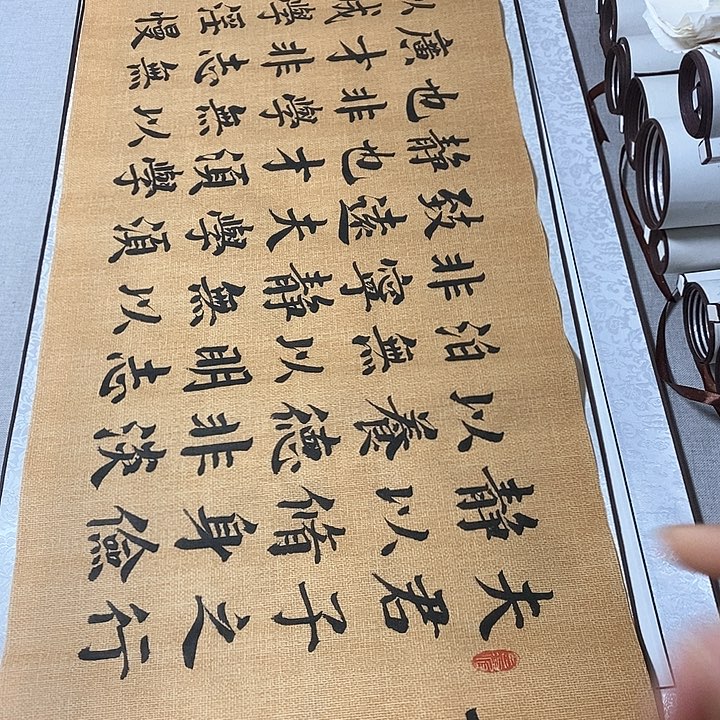 夫君子之行
靜以脩身儉
以養德非淡
泊無以明志
非寧靜無以
致遠夫學須
靜也才須學
也非學無以
廣才非志無
以成學淫慢